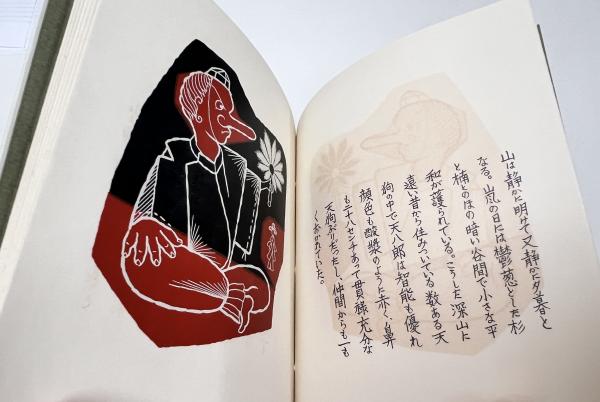 山は静かに明けて又静かに夕暮と
なる。嵐の日には鬱葱とした杉
と楠とのほの暗い谷間で小さな平
和が護られている。こうした深山に
遠い昔から住みついている数ある天
狗の中で天八郎は智能も優れ
顔色も酸漿のように赤く、鼻
も二十八センチあって貫禄充分な
天狗ぶりだったし、仲間からも一も
くおかれていた。